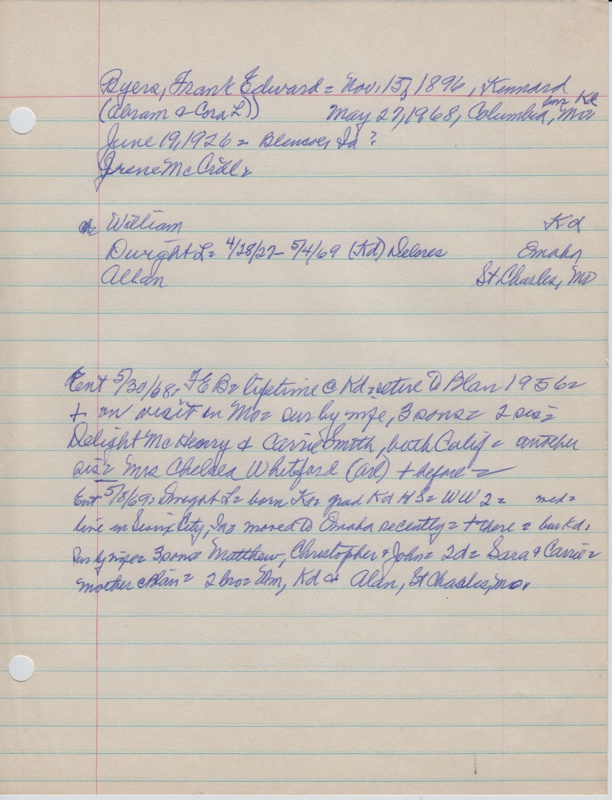 Byers, Frank Edward = Nov. 15, 1896, Kennard
(Abram & Cora L) May 27, 1968, Columbia, Mo
bur Kd
June 19, 1926 = Blencoe, Ia ?
Irene McCrill
ch William Kd
Dwight L = 4/28/27 - 5/4/69 (Kd) Delores Omaha
Allan St Charles, Mo
Ent 5/30/68. FEB = lifetime @ Kd = retire to Blair 1956 =
+ on visit in Mo = sur by wife, 3 sons = 2 sis =
Delight McHenry & Carrie Smith, both Calif = another
sis = Mrs Chelsea Whitford (Ark) + before =
Ent 5/8/69: Dwight L = born Kd = grad Kd HS = WW2 =
live in Sioux City, Ia = moved to Omaha recently = + there = bur Kd.
sur by wife = 3 sons = Matthew, Christopher & John = 2d = Sara & Carrie =
mother @ Blair = 2 bro = Wm, Kd & Alan, St Charles, Mo.